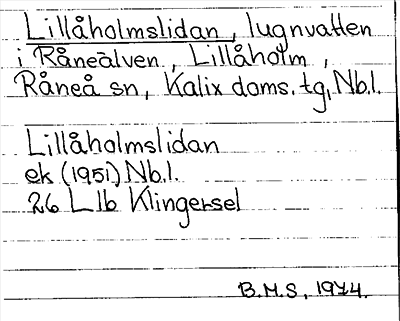 Lillåholmslidan, lugnvatten
i Råneälven, Lillåholm,
Råneå sn, Kalix doms. tg, Nb.l.
Lillåholmslidan
ek (1951) Nb.l.
26 L 1b Klingersel
B.M.S, 1974.